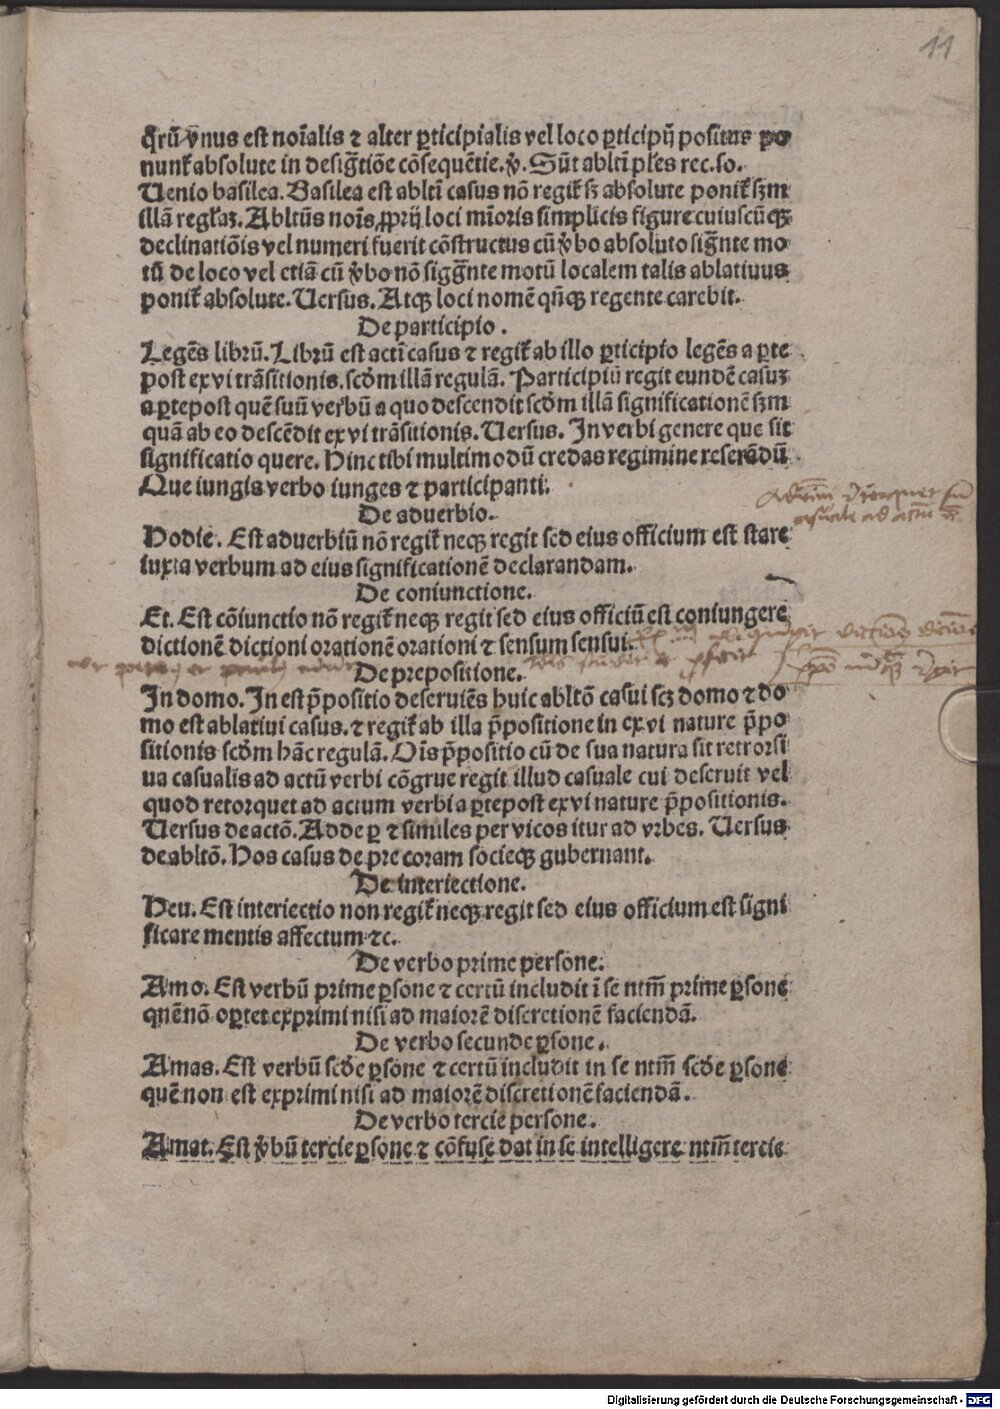 11
qͬrū vnus est noīalis ⁊ alter ꝑticipialis vel loco ꝑticipij positus po
nunt᷑ absolute in desigͣtiōe cōsequētie. v̉. Sūt ablti ples rec. so.
Uenio basilea. Basilea est ablti casus nō regit᷑ sꝫ absolute ponit᷑ sꝫm
illā reglaꝫ. Abltūs noīs ꝓprij loci mīoris simplicis figure cuiuscūqꝫ
declinatiōis vel numeri fuerit cōstructus cū v̉bo absoluto sigͣnte mo
tū de loco vel etiā cū v̉bo nō siggͣnte motū localem talis ablatiuus
ponit᷑ absolute. Uersus. Atqꝫ loci nomē qn̄qꝫ regente carebit.
De participio.
Legēs librū. Librū est acti casus ⁊ regit᷑ ab illo ꝑticipio legēs a ꝑte
post ex vi trāsitionis. scd̓m illā regulā. Participiū regit eundē casuꝫ
a ꝑtepost quē suū verbū a quo descendit scd̓m illā significationē sꝫm
quā ab eo descēdit ex vi trāsitionis. Uersus. In verbi genere que sit
significatio quere. Hinc tibi multimodū credas regimine referēdū
Que iungis verbo iunges ⁊ participanti.
De aduerbio.
Hodie. Est aduerbiū nō regit᷑ neqꝫ regit sed eius officium est stare
iuxta verbum ad eius significationē declarandam.
De coniunctione.
Et. Est cōiunctio nō regit᷑ neqꝫ regit sed eius officiū est coniungere
dictionē dictioni orationē orationi ⁊ sensum sensui.
De prepositione.
In domo. In est p̄positio deseruiēs huic abltō casui scꝫ domo ⁊ do
mo est ablatiui casus. ⁊ regit᷑ ab illa p̄positione in ex vi nature p̄po
sitionis scd̓m hāc regulā. Oīs p̄positio cū de sua natura sit retrorsi
ua casualis ad actū verbi cōgrue regit illud casuale cui deseruit vel
quod retorquet ad actum verbi a ꝑtepost ex vi nature p̄positionis.
Uersus de actō. Adde ꝑ ⁊ similes per vicos itur ad vrbes. Uersus
de abltō. Hos casus de pre coram socieqꝫ gubernant.
De interiectione.
Heu. Est interiectio non regit᷑ neqꝫ regit sed eius officium est signi
ficare mentis affectum ⁊c.
De verbo prime persone.
Amo. Est verbū prime ꝑsone ⁊ certū includit ī se ntm̄ prime ꝑsone
quē nō oꝑtet exprimi nisi ad maiorē discretionē faciendā.
De verbo secunde ꝑsone.
Amas. Est verbū scd̓e ꝑsone ⁊ certū includit in se ntm̄ scd̓e ꝑsone
quē non est exprimi nisi ad maiorē discretionē faciendā.
De verbo tercie persone.
Amat. Est v̉bū tercie ꝑsone ⁊ cōfuse dat in se intelligere ntm̄ tercie
Digitalisierung gefördert durch die Deutsche Forschungsgemeinschaft - DFG